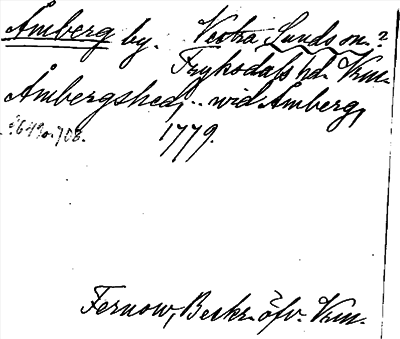 Åmberg by. Vestra Sunds sn.?
Fryksdals hd. Vrm.
Åmbergshed, .. wid Åmberg,
1779.
Fernow, Beskr. öfv. Vrm.